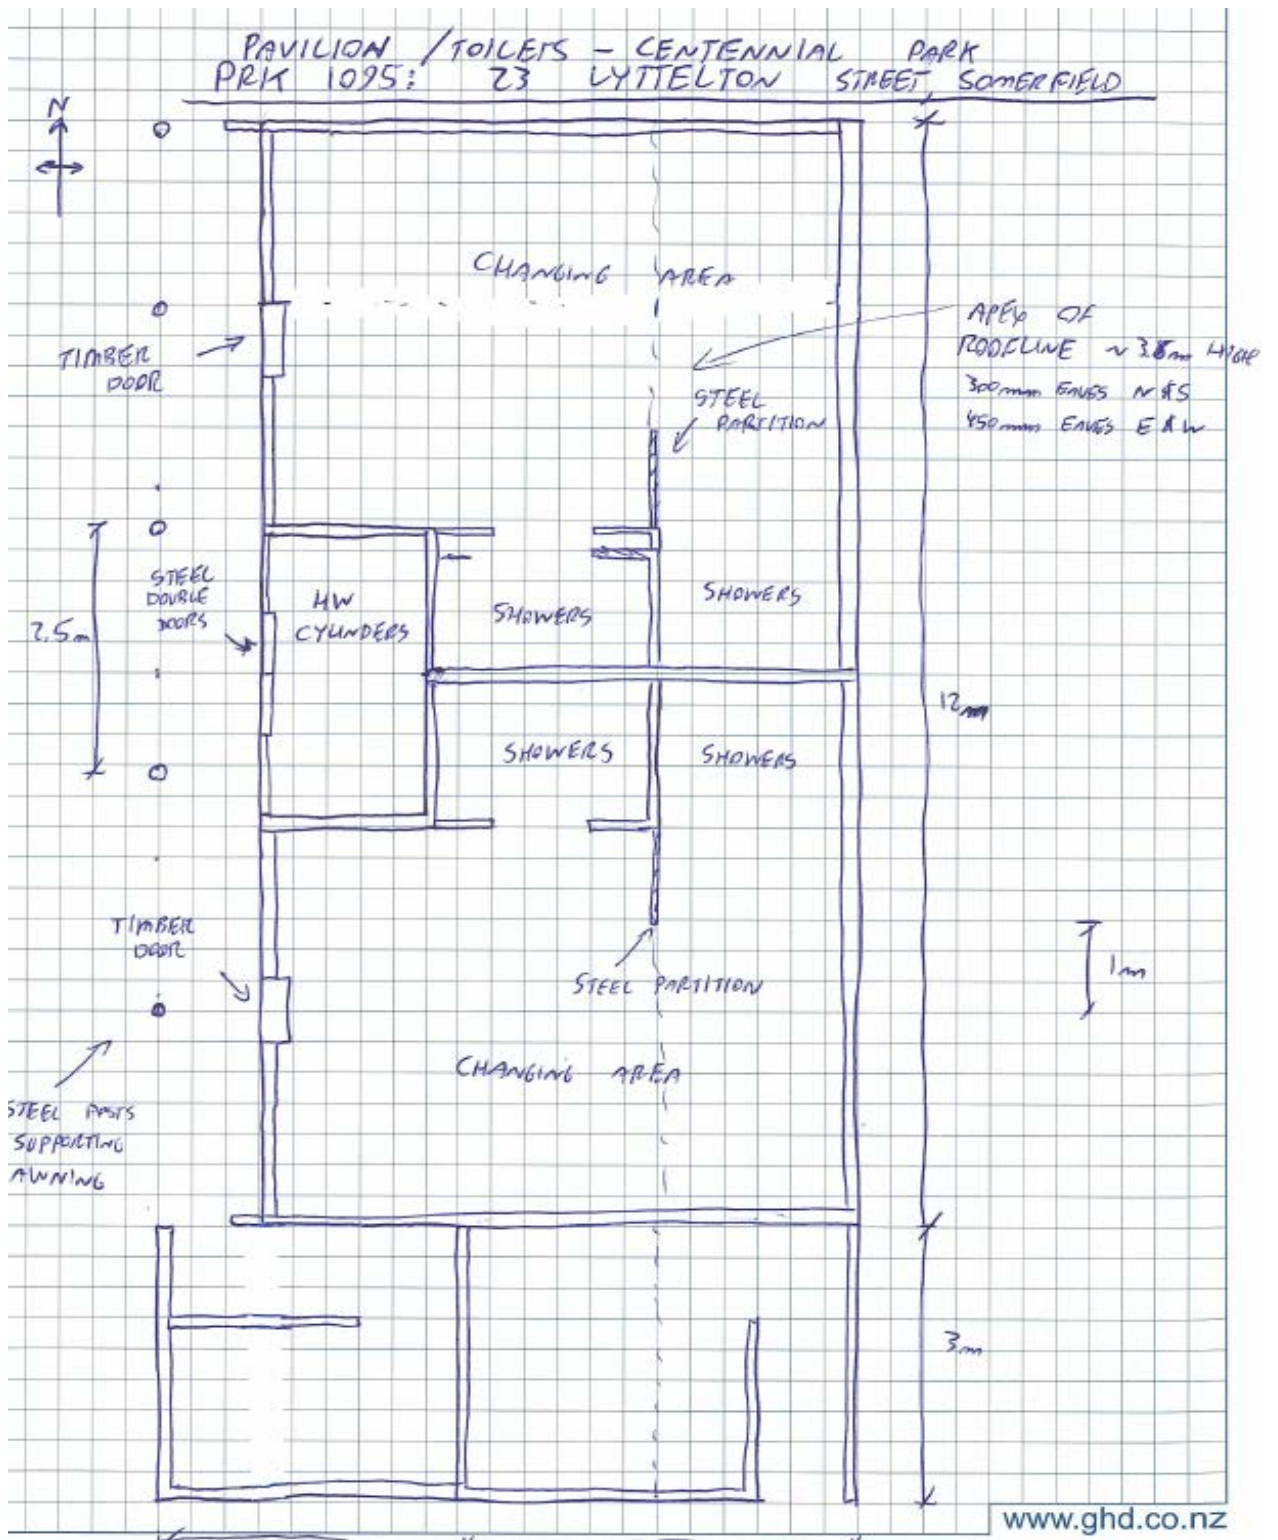 PAVILION / TOILETS - CENTENNIAL PARK
PRK 1095: 23 LYTTELTON STREET, SOMERFIELD
N
CHANGING AREA
TIMBER
DOOR
APEX OF
ROOFLINE ~ 3.8m HIGH
300mm EAVES N & S
450mm EAVES E & W
STEEL
PARTITION
STEEL
DOUBLE
DOORS
2.5m
HW
CYLINDERS
SHOWERS
SHOWERS
12m
SHOWERS
SHOWERS
TIMBER
DOOR
STEEL PARTITION
1m
CHANGING AREA
STEEL POSTS
SUPPORTING
AWNING
3m
www.ghd.co.nz